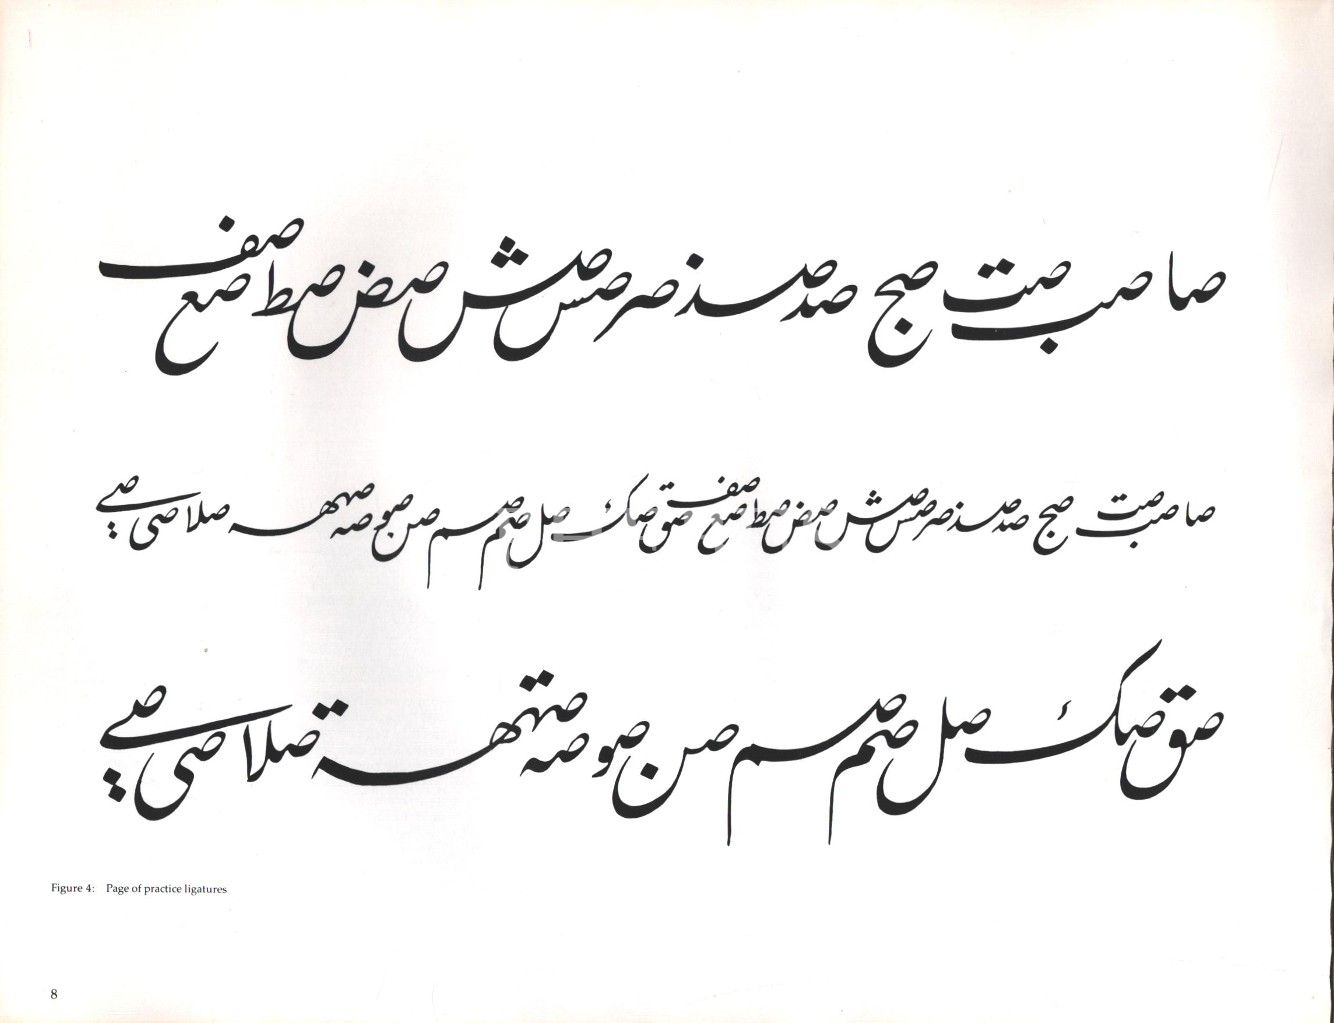 صا صب صت صج صد صد صذ صر صس صش صض صط صع صف
صا صب صت صج صد صد صذ صر صس صش صض صط صع صف صق صک صل صم صم صن صو صه صتهه صلا صی صے
صق صک صل صم صم صن صو صه صتهة صلا صی صے
Figure 4: Page of practice ligatures
8